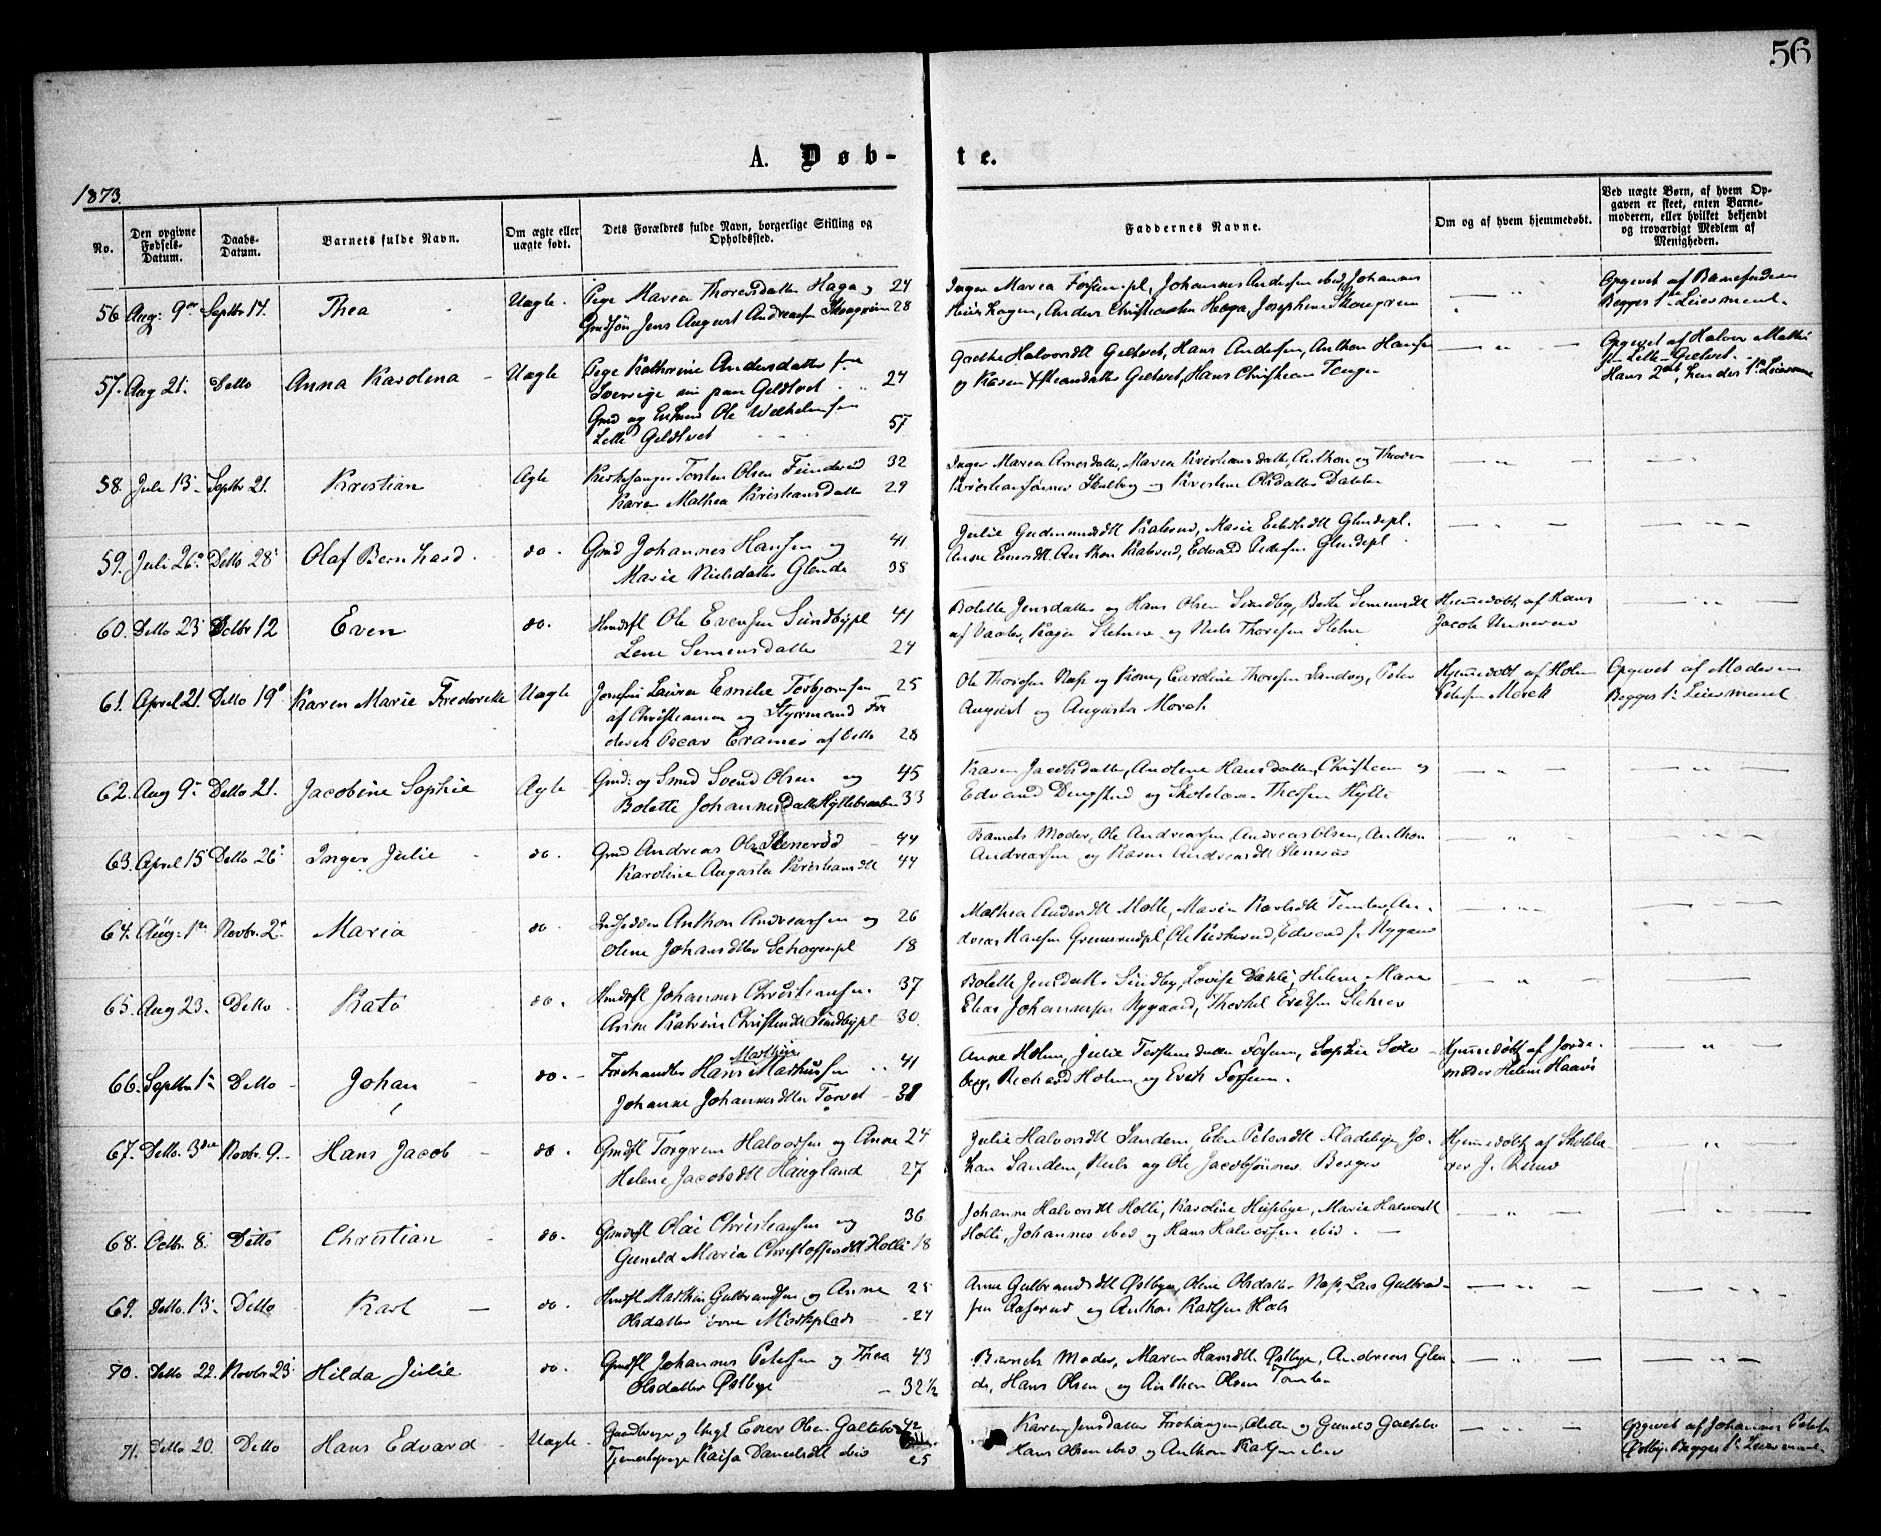 56
A. Døb-te.
1873.
No.
Den opgivne Fødsels-Datum.
Daabs-Datum.
Barnets fulde Navn.
Om ægte eller uægte født.
Dets Forældres fulde Navn, borgerlige Stilling og Opholdssted.
Faddernes Navne.
Om og af hvem hjemmedøbt.
Ved uægte Børn, af hvem Opgaven er skeet, enten Barnemoderen, eller hvilket bekjendt og troværdigt Medlem af Menigheden.
56. Aug: 9de Septbr 14. Thea Uægte. Pige Maren Thoresdatter Haga og 24
Gmdsøn Jens August Andreassen 28
Inger Maria Johannes Andersen ibid, Johannes
Anders Christiansen Haga, Josephine
Opgivet af Barnefaderen
Begges 1ste Leiermaal.
57. Aug 21. Ditto Anna Karolena Uægte Pige Kathrine Andersdatter fra
Sverrige nu paa Geldtvet 24
Gmd og Enkem Ole Wilhelmsen
Lille Geldtvet 57
Halvorsdt Geltvet, Hans Andersen, Anthon Hansen
og Karen Geltvet, Hans Christian
Opgivet af Halvor
Lille Geltvet.
Hans 2det, hendes 1ste Leiermaal
58. Juli 13 Septbr 21. Kristian Ægte Kirkesanger Torsten Olsen 32
Karen Mathea Kristiansdatter 29
Inger Maria Arnesdatter, Maren Kristiansdatter, Anthon og Thorvald
og Kirstine Olsdatter Dahlen
59. Juli 26. Ditto 28 Olaf Bernhard do. Gmd Johannes Hansen og 41
Marie Nielsdatter Glende 38
Julie Gudmundsdt Kalsrud, Marie Glendepl.
Anne Anthon Kalsrud, Edvard Pedersen Glendepl.
60. Ditto 23 Octbr 12 Even do. Hmdsfl Ole Evensen Sundbypl 41
Lene Simensdatter 24
Bolette Jensdatter og Hans Olsen Sundby, Berte Simensdt
af Vaaler, Kaja Sletner og Niels Thoresen Sletner
Hjemmedøbt af Hans
Jacob
61. April 21. Ditto 19 Karen Marie Frederikke Uægte Josefine Laura Emilie Torbjornsen 25
af Christiania og Styrmand Fre
derik Oscar af Ditto 28
Ole Thoresen Næs og Kone, Caroline Thoresen Sandvig, Peter
August og Augusta Morck
Hjemmedøbt af Holm
Petersen Morck
Opgivet af Moderen
Begges 1ste Leiermaal
62. Aug 9 Ditto 21. Jacobine Sophie Ægte Gmd: og Smed Svend Olsen og 45
Bolette Johannesdatter Hyllebraaten 33
Karen Jacobsdatter, Andrine Hansdatter, Christian og
Edvard Dingstad og Skolelærer Thorsen Hylle
63. April 15 Ditto 26 Inger Julie do. Gmd Andreas Olsen Stenerød 44
Karoline Augusta Kristiansdt 44
Barnets Moder, Ole Andreassen, Andreas Olsen, Anthon
Andreassen og Karen Andreasdt Stenerød
64. Aug: 1ste Novbr. 2. Maria do. Indsidder Anthon Andreassen og 26
Oline Johansdtter Schogenpl 18
Mathea Andersdt Molle, Maren Karlsdt An-
dreas Hansen Ole Edvard J. Nygaard
65. Aug 23. Ditto Kato do. Hmdsfl Johannes Christiansen 37
Anne Katrine Sundbypl 30.
Bolette Jensdatter Sundby, Lovise Dahle, Helene Marie
Elias Johannesen Nygaard, Theodor Sletner
66. Septbr 1ste Ditto Johan do. Forhandler Hans Mathias 41
Johanne Johannesdtter Torvet 31
Anne Holm, Julie Torstensdatter Fossum, Sophie Sol-
berg, Richard Holm og Erik Fossum.
Hjemmedøbt af Jorde-
moder Helene Haavs
67. Ditto 3die Novbr. 9. Hans Jacob do. Gmdsfl Torgrim Halvorsen og Anne 24
Helene Jacobsdt Haugland 27
Julie Halvorsdt Sandem, Elen Petersdt Fladebye, Jo-
han Sandem, Niels og Ole Jacobsønner Berger
Hjemmedøbt af Skolelæ-
rer J.
68. Octbr 8. Ditto Christian do. Gmdsfl Olai Christiansen og 36
Gunild Maria Christoffersdt Holli 18
Johanne Halvorsdt Holli, Karoline Huseby, Marie Halvorsdt
Holli, Johannes ibid og Hans Halvorsen ibid.
69. Ditto 13 Ditto Karl do. Hmdsfl Mathias Gulbrandsen og Anne 25
Olsdatter 24
Anne Gulbrandsdt Østbye, Oline Olsdatter Næs, Lars Gulbrand-
sen Aaserud og Anthon Karlsen Hols
70. Ditto 22. Novbr 23 Hilda Julie do. Gmdsfl Johannes Petersen og Thea 43
Olsdatter Østbye 32½
Barnets Moder, Maren Hansdt Østbye, Andreas Glen-
de, Hans Olsen og Anthon Olsen Tomter
71. Ditto 20. Ditto Hans Edvard Uægte Gaardbruger og Ungk Even Olsen Galteb 42
Tjenestepige Kaisa Danielsdt ibid 25
Karen Jensdatter Alette og Gunild Galtebo
Hans Olsen ibid og Anthon Karlsen ibid
Opgivet af Johannes Peters
Østby. Begges 1ste Leiermaal